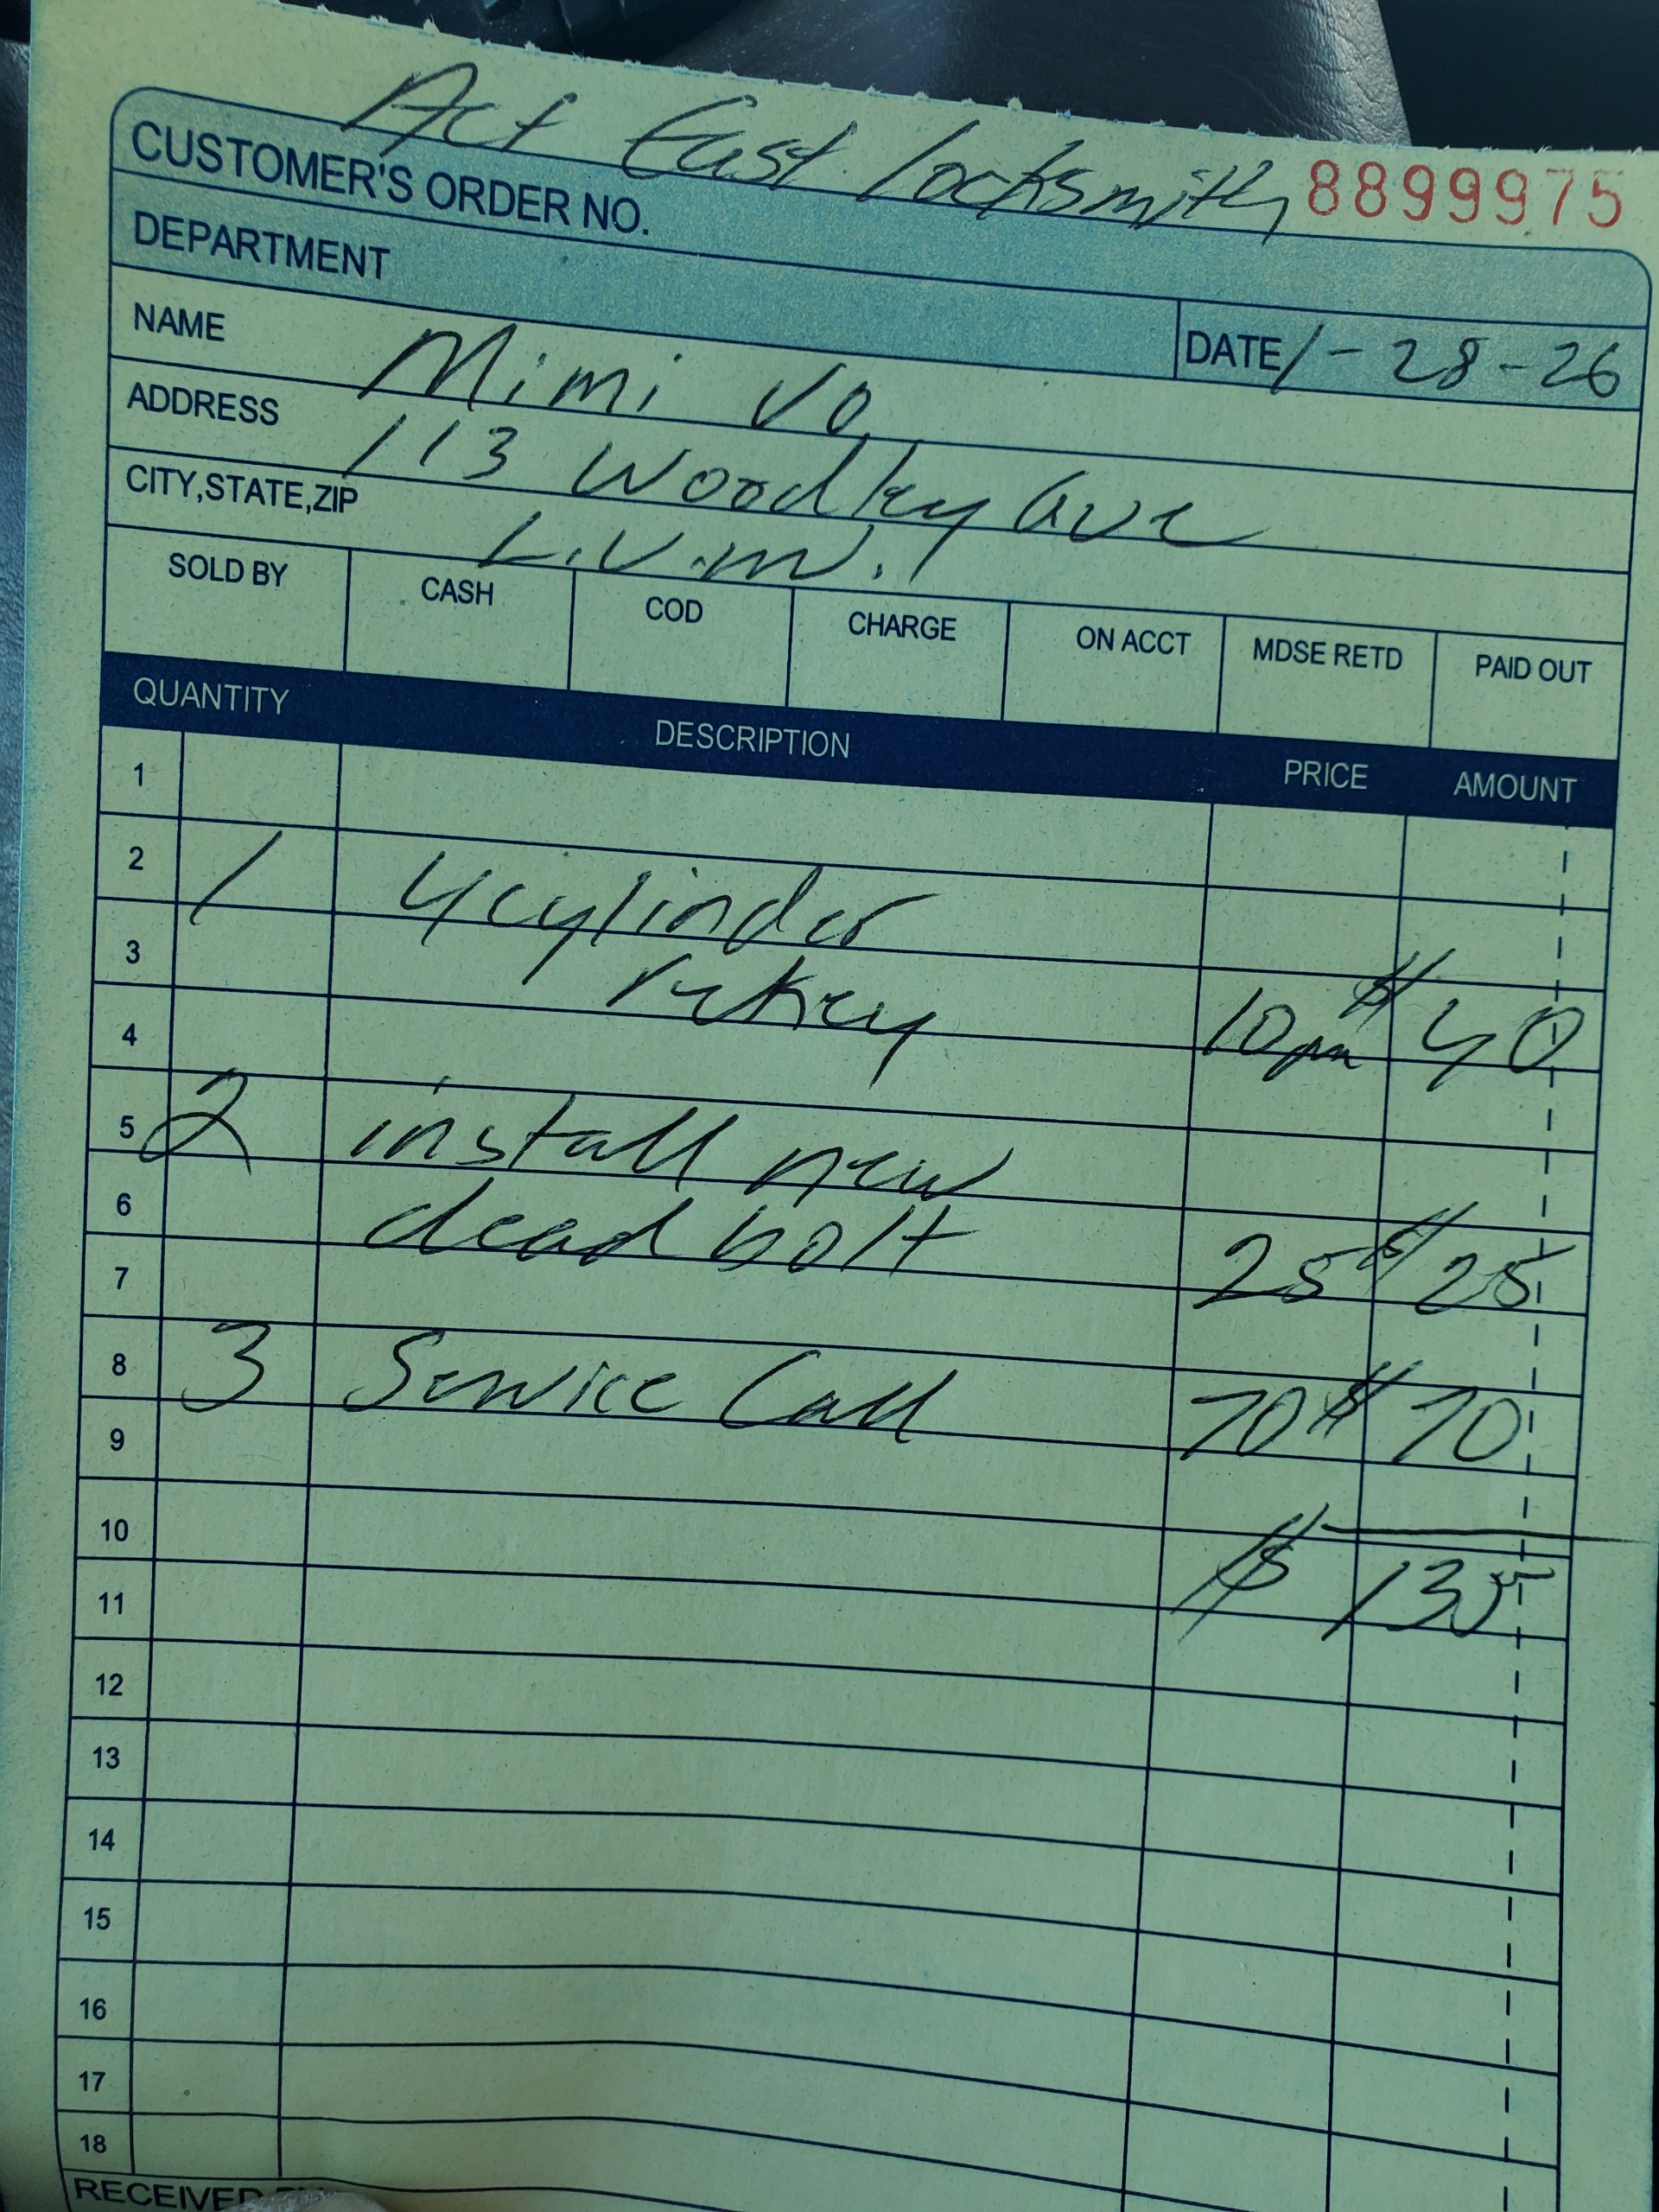 Act East Locksmith 8899975
CUSTOMER'S ORDER NO.
DEPARTMENT
NAME Mimi Vo DATE 1-28-26
ADDRESS 113 Woodley Ave
CITY,STATE,ZIP L.V.M.
SOLD BY CASH COD CHARGE ON ACCT MDSE RETD PAID OUT
QUANTITY DESCRIPTION PRICE AMOUNT
1
2 1 4 cylinder
3 rekey 10 $ 40
4
5 2 install new
6 dead bolt 25 $ 25
7
8 3 Service Call 70 $ 70
9
10 $ 135
11
12
13
14
15
16
17
18
RECEIVED